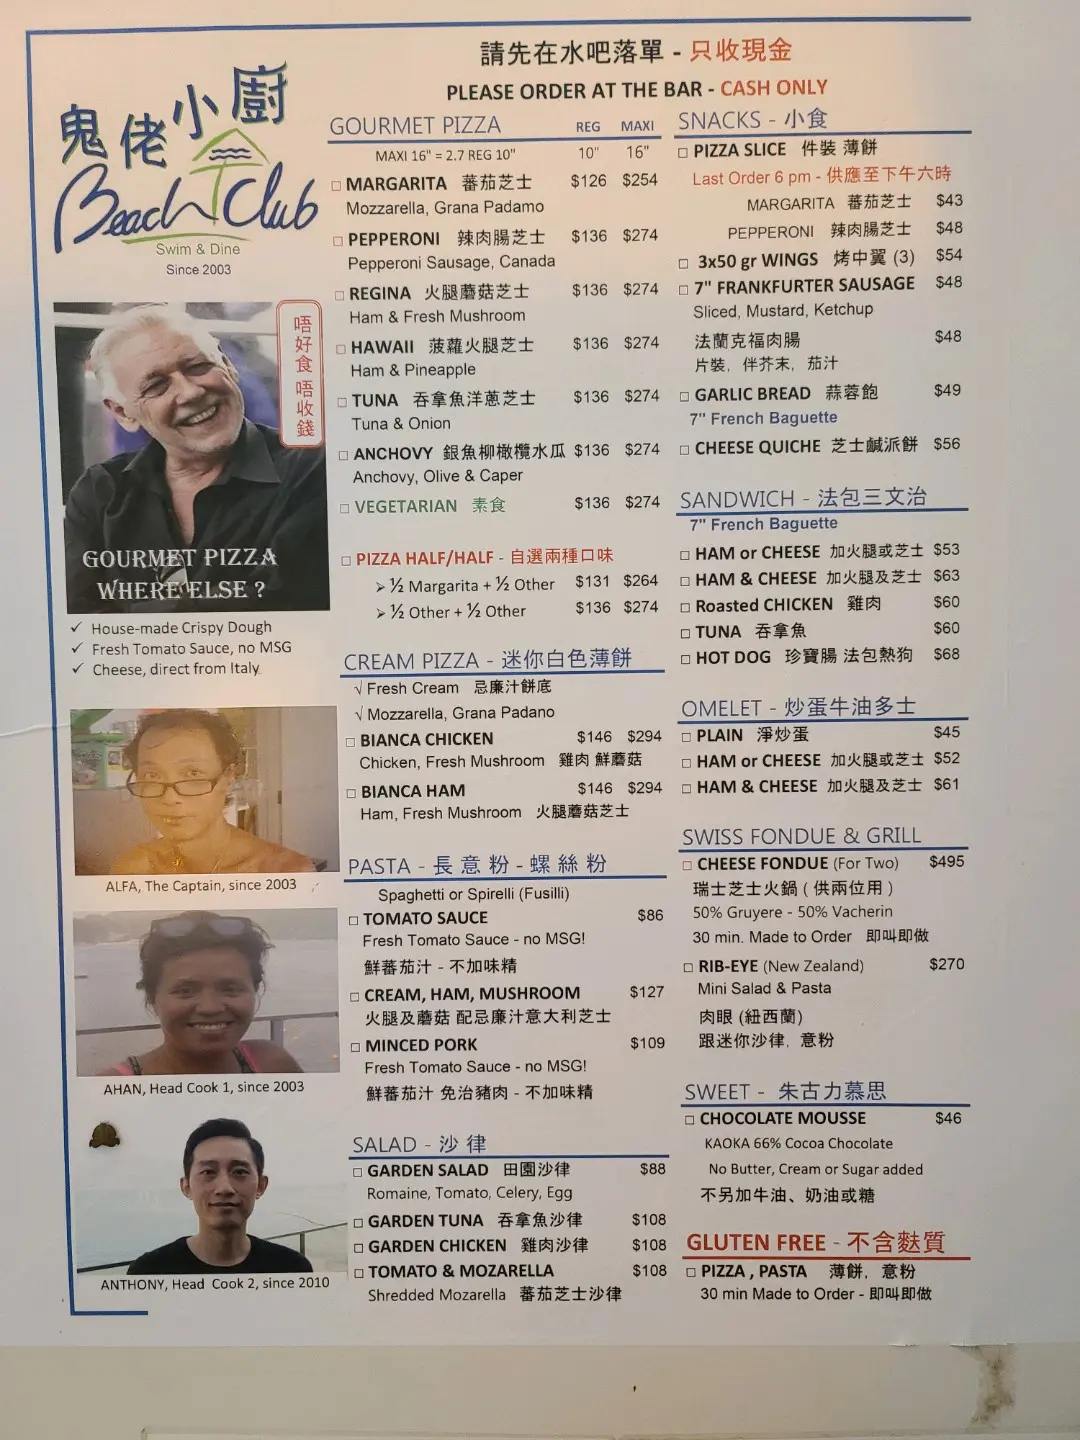 鬼佬小廚
Beach Club
Swim & Dine
Since 2003
唔好食 唔收錢
GOURMET PIZZA
WHERE ELSE ?
✓ House-made Crispy Dough
✓ Fresh Tomato Sauce, no MSG
✓ Cheese, direct from Italy.
ALFA, The Captain, since 2003
AHAN, Head Cook 1, since 2003
ANTHONY, Head Cook 2, since 2010
請先在水吧落單 - 只收現金
PLEASE ORDER AT THE BAR - CASH ONLY
GOURMET PIZZA REG MAXI
MAXI 16" = 2.7 REG 10" 10" 16"
□ MARGARITA 蕃茄芝士 $126 $254
Mozzarella, Grana Padamo
□ PEPPERONI 辣肉腸芝士 $136 $274
Pepperoni Sausage, Canada
□ REGINA 火腿蘑菇芝士 $136 $274
Ham & Fresh Mushroom
□ HAWAII 菠蘿火腿芝士 $136 $274
Ham & Pineapple
□ TUNA 吞拿魚洋蔥芝士 $136 $274
Tuna & Onion
□ ANCHOVY 銀魚柳橄欖水瓜 $136 $274
Anchovy, Olive & Caper
□ VEGETARIAN 素食 $136 $274
□ PIZZA HALF/HALF - 自選兩種口味
➢ ½ Margarita + ½ Other $131 $264
➢ ½ Other + ½ Other $136 $274
CREAM PIZZA - 迷你白色薄餅
√ Fresh Cream 忌廉汁餅底
√ Mozzarella, Grana Padano
□ BIANCA CHICKEN $146 $294
Chicken, Fresh Mushroom 雞肉 鮮蘑菇
□ BIANCA HAM $146 $294
Ham, Fresh Mushroom 火腿蘑菇芝士
PASTA - 長意粉 - 螺絲粉
Spaghetti or Spirelli (Fusilli)
□ TOMATO SAUCE $86
Fresh Tomato Sauce - no MSG!
鮮蕃茄汁 - 不加味精
□ CREAM, HAM, MUSHROOM $127
火腿及蘑菇 配忌廉汁意大利芝士
□ MINCED PORK $109
Fresh Tomato Sauce - no MSG!
鮮蕃茄汁 免治豬肉 - 不加味精
SALAD - 沙律
□ GARDEN SALAD 田園沙律 $88
Romaine, Tomato, Celery, Egg
□ GARDEN TUNA 吞拿魚沙律 $108
□ GARDEN CHICKEN 雞肉沙律 $108
□ TOMATO & MOZARELLA $108
Shredded Mozarella 蕃茄芝士沙律
SNACKS - 小食
□ PIZZA SLICE 件裝 薄餅
Last Order 6 pm - 供應至下午六時
MARGARITA 蕃茄芝士 $43
PEPPERONI 辣肉腸芝士 $48
□ 3x50 gr WINGS 烤中翼 (3) $54
□ 7" FRANKFURTER SAUSAGE $48
Sliced, Mustard, Ketchup
法蘭克福肉腸 $48
片裝, 伴芥末, 茄汁
□ GARLIC BREAD 蒜蓉飽 $49
7" French Baguette
□ CHEESE QUICHE 芝士鹹派餅 $56
SANDWICH - 法包三文治
7" French Baguette
□ HAM or CHEESE 加火腿或芝士 $53
□ HAM & CHEESE 加火腿及芝士 $63
□ Roasted CHICKEN 雞肉 $60
□ TUNA 吞拿魚 $60
□ HOT DOG 珍寶腸 法包熱狗 $68
OMELET - 炒蛋牛油多士
□ PLAIN 淨炒蛋 $45
□ HAM or CHEESE 加火腿或芝士 $52
□ HAM & CHEESE 加火腿及芝士 $61
SWISS FONDUE & GRILL
□ CHEESE FONDUE (For Two) $495
瑞士芝士火鍋 ( 供兩位用 )
50% Gruyere - 50% Vacherin
30 min. Made to Order 即叫即做
□ RIB-EYE (New Zealand) $270
Mini Salad & Pasta
肉眼 (紐西蘭)
跟迷你沙律, 意粉
SWEET - 朱古力慕思
□ CHOCOLATE MOUSSE $46
KAOKA 66% Cocoa Chocolate
No Butter, Cream or Sugar added
不另加牛油、奶油或糖
GLUTEN FREE - 不含麩質
□ PIZZA , PASTA 薄餅, 意粉
30 min Made to Order - 即叫即做